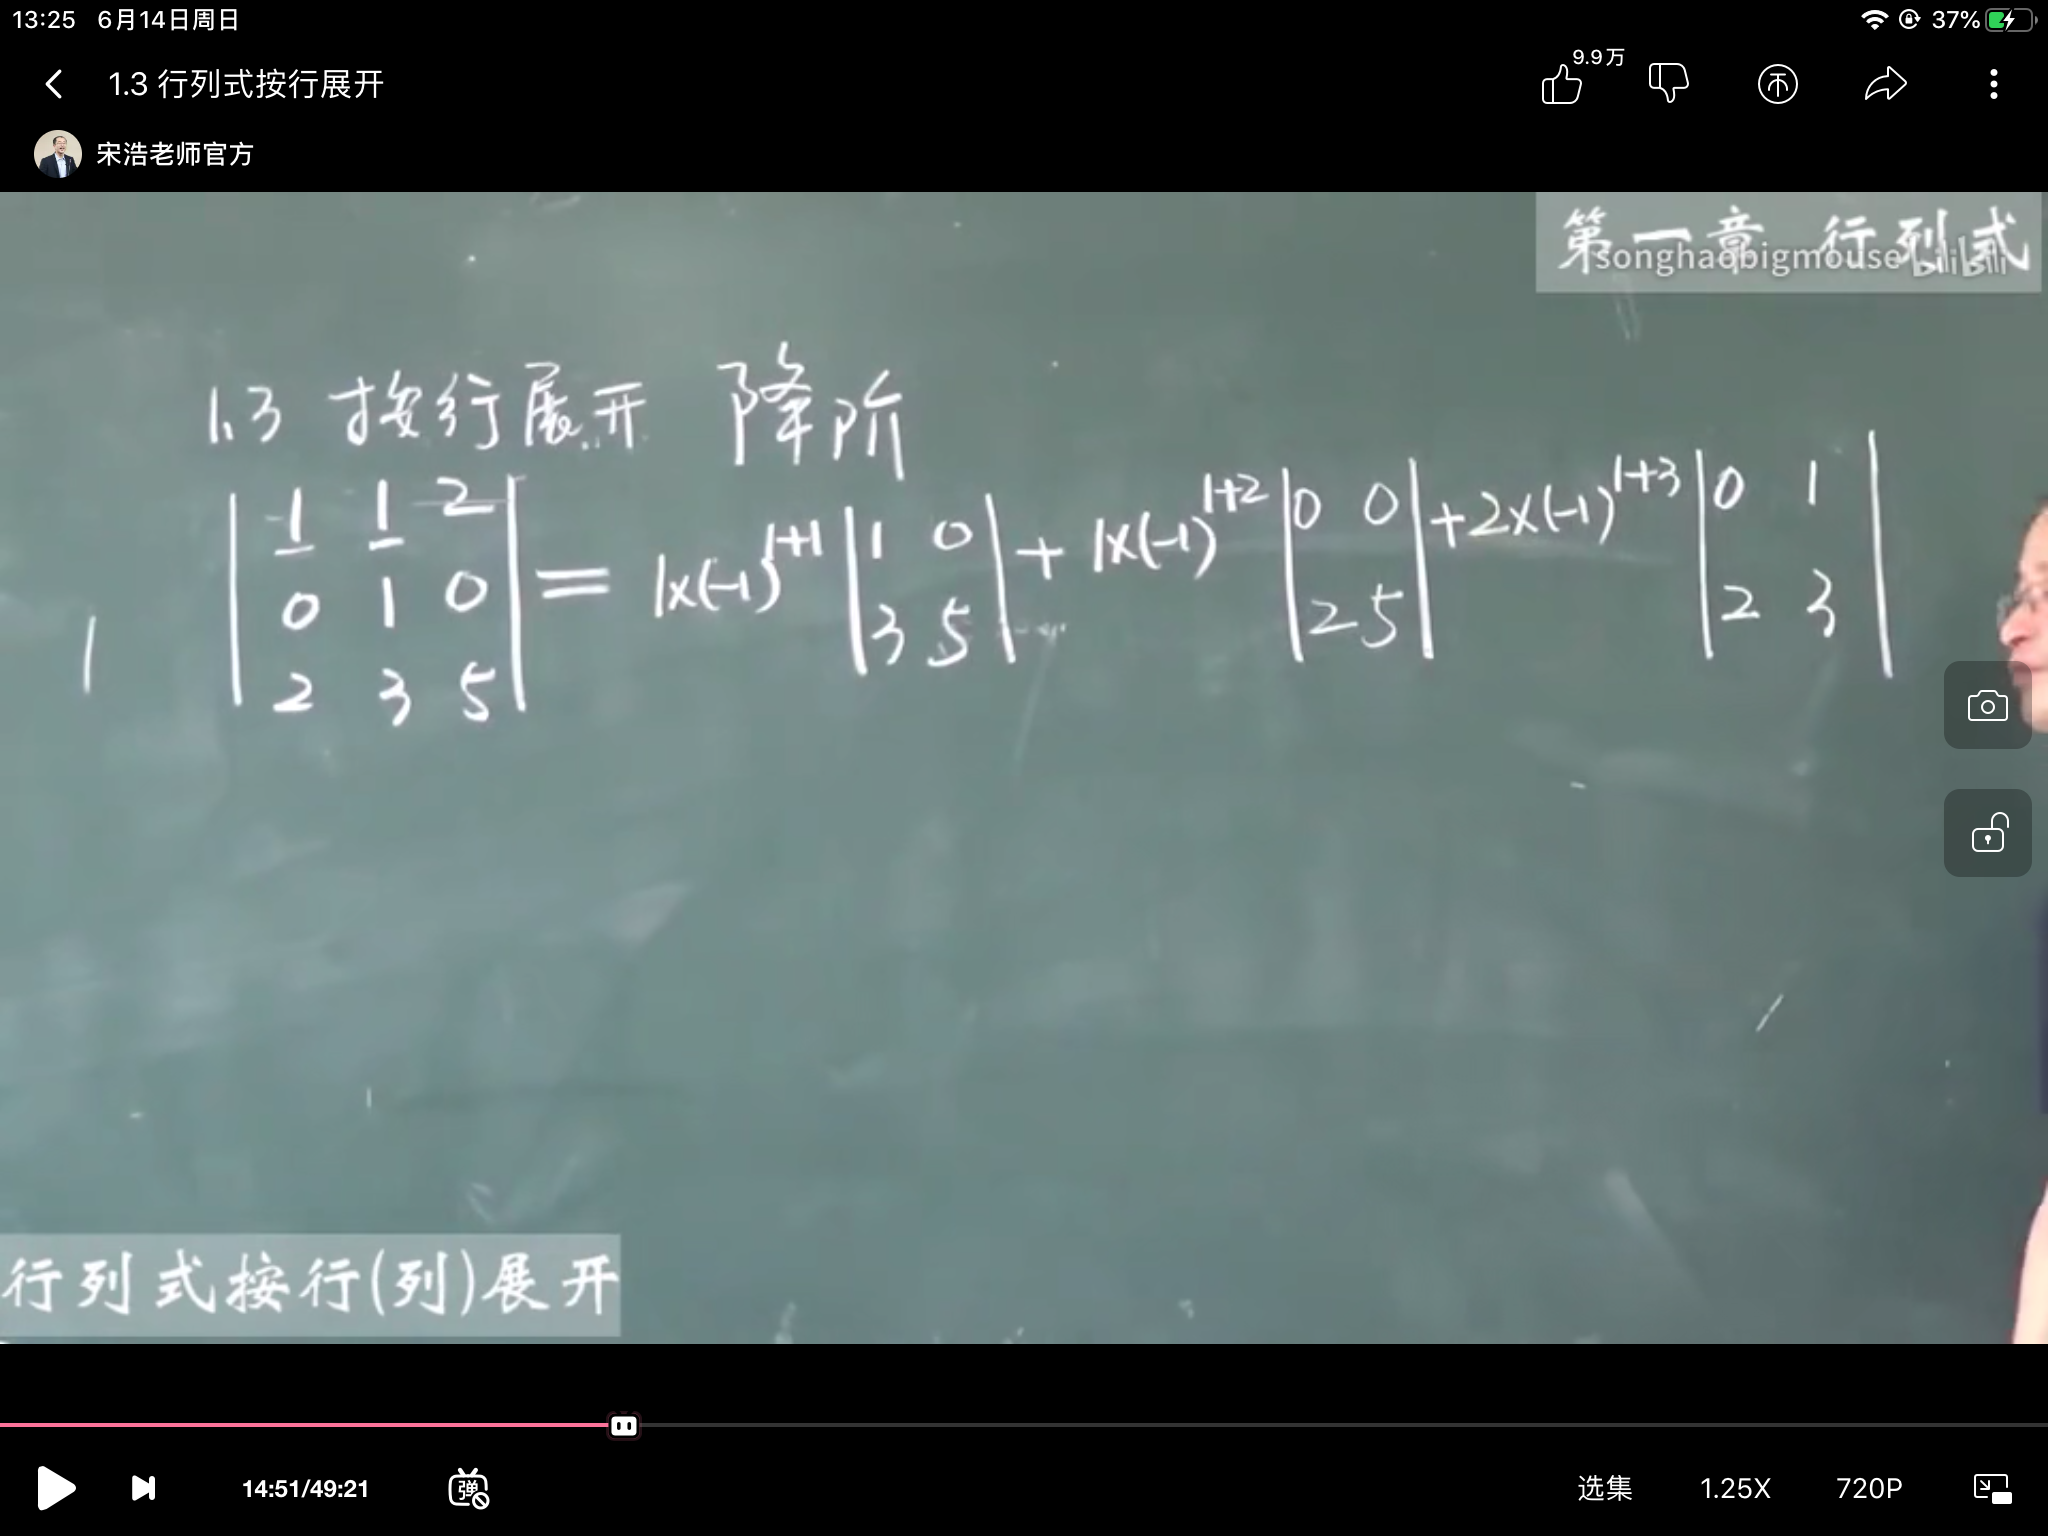 13:25 6月14日周日 37%
1.3 行列式按行展开 9.9万
宋浩老师官方
第一章 行列式
songhaobigmouse bilibili
1.3 按行展开 降阶
| 1 1 2 | = 1×(-1)^{1+1} | 1 0 | + 1×(-1)^{1+2} | 0 0 | + 2×(-1)^{1+3} | 0 1 |
| 0 1 0 | | 3 5 | | 2 5 | | 2 3 |
| 2 3 5 |
行列式按行(列)展开
14:51/49:21 弹 选集 1.25X 720P